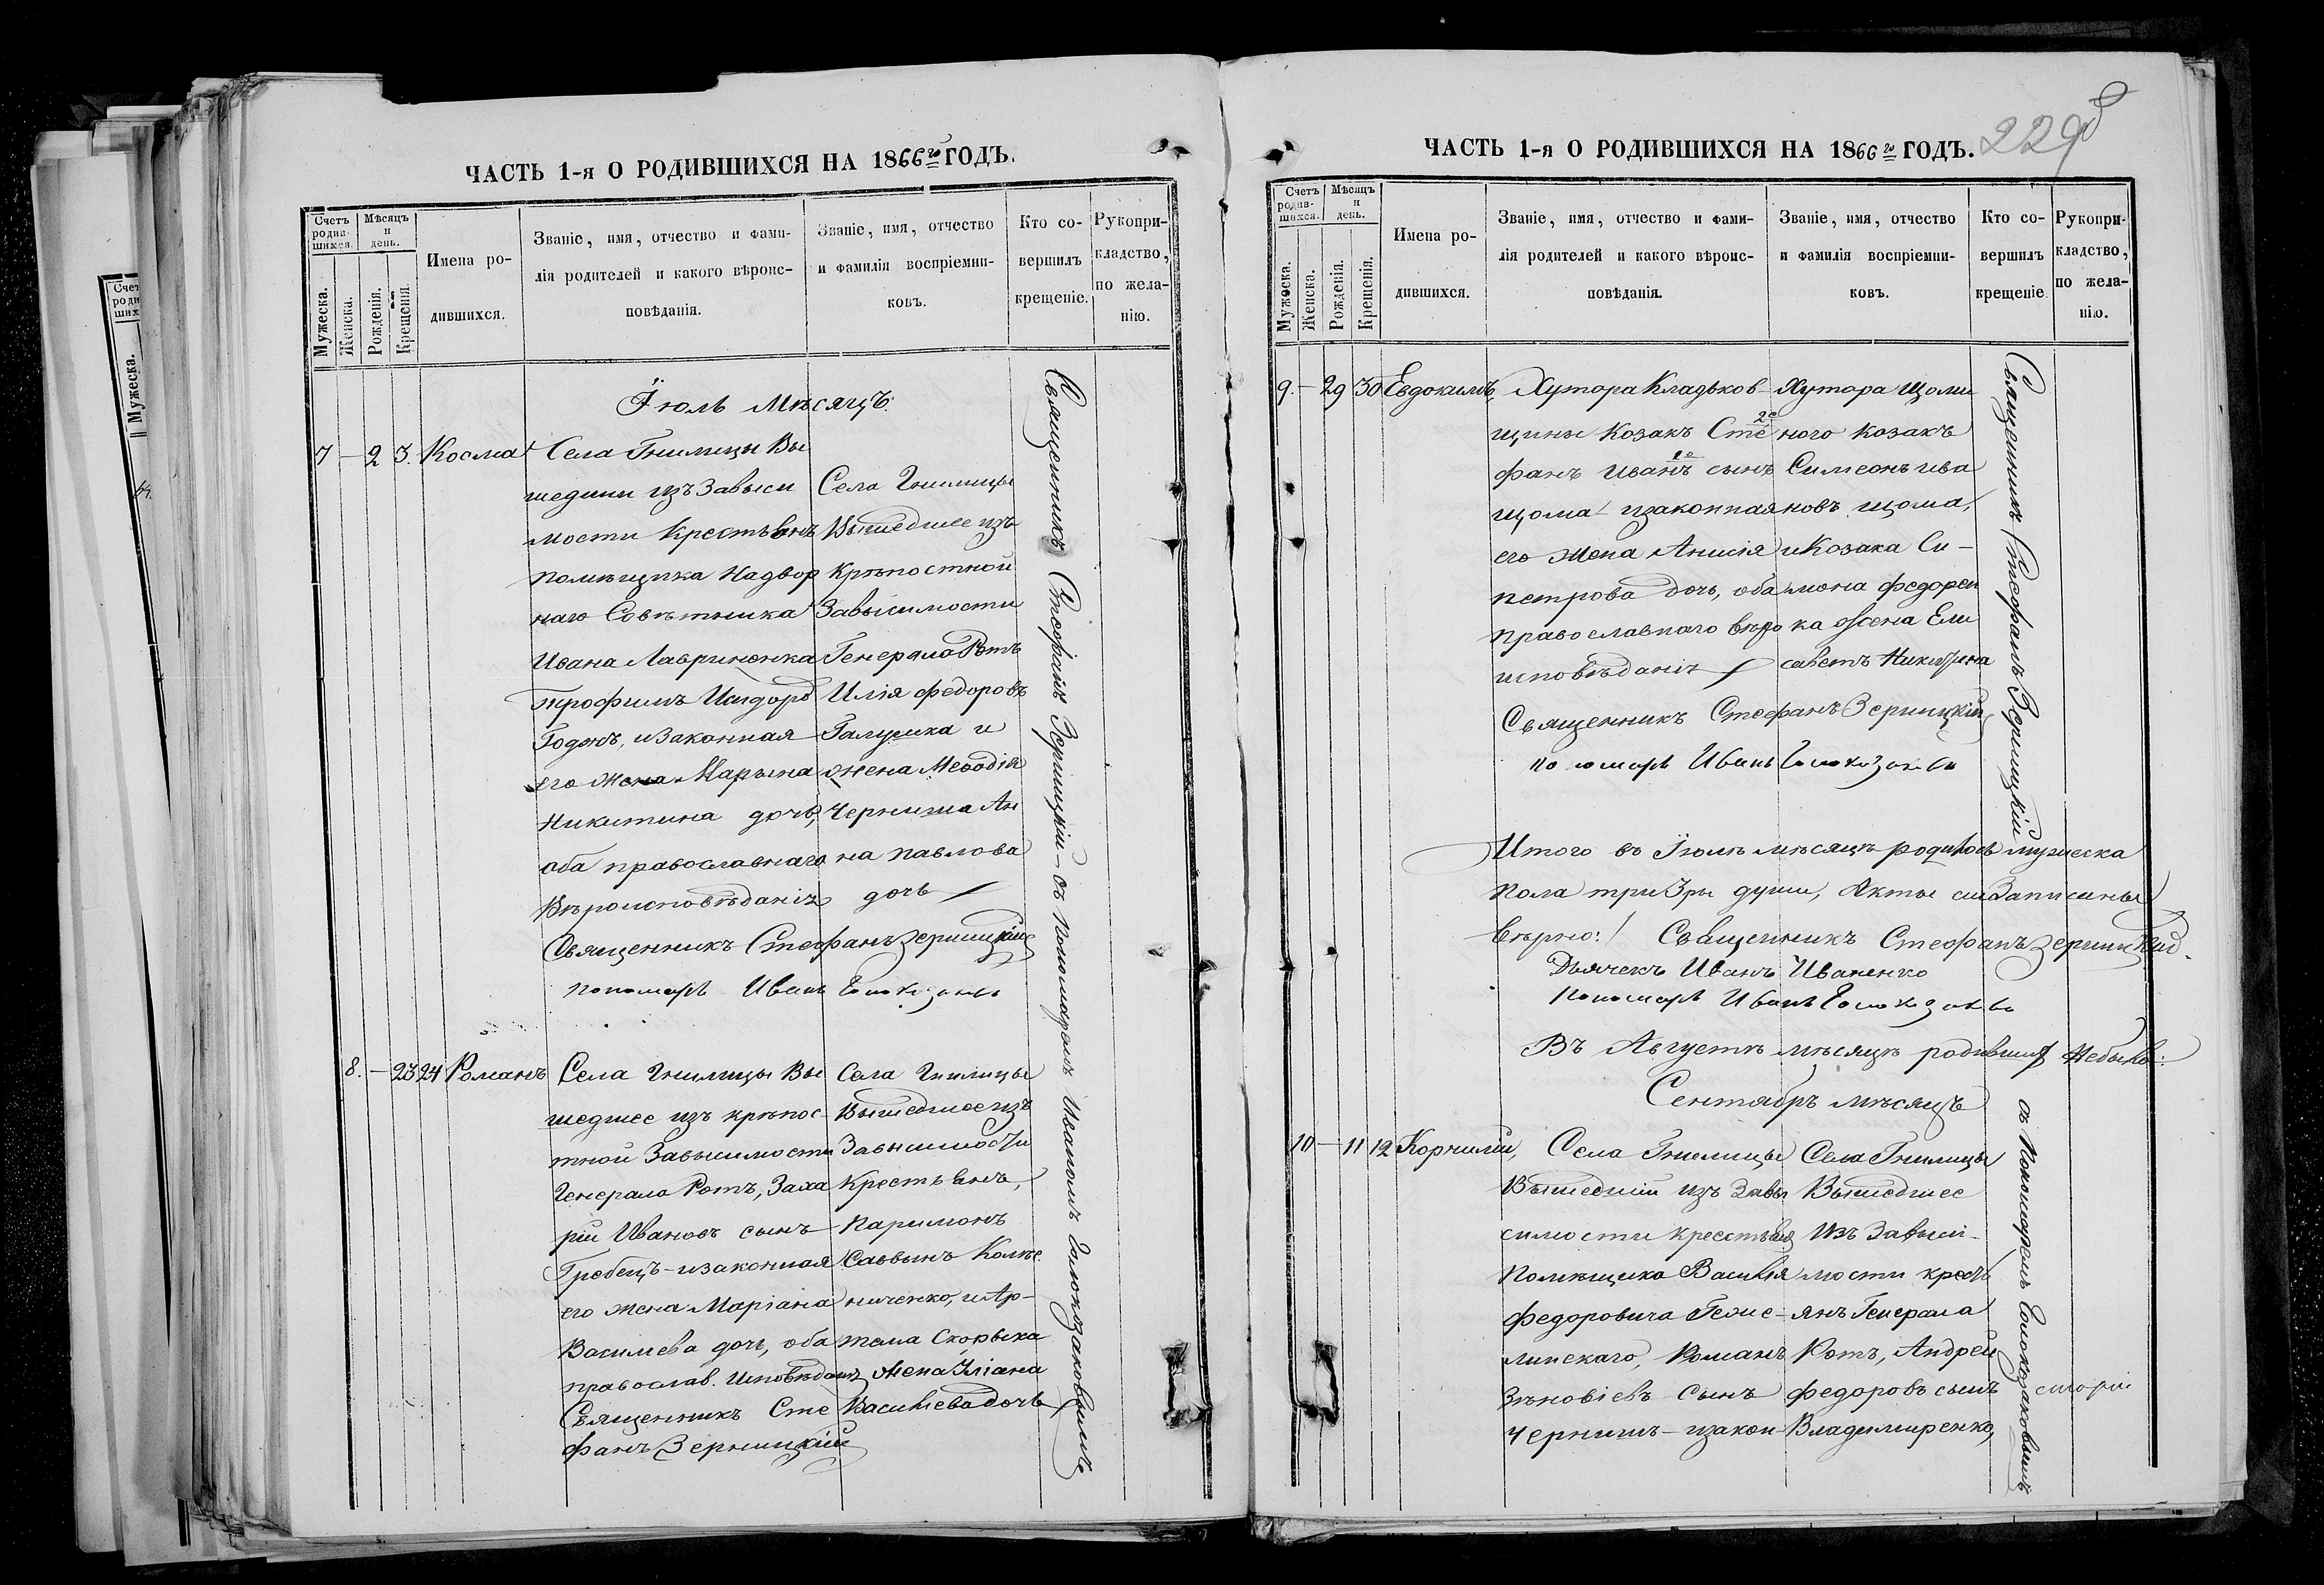 ЧАСТЬ 1-я О РОДИВШИХСЯ НА 1866го ГОДЪ.
Счетъ родив-шихся.
Мѣсяцъ и день.
Мужеска.
Женска.
Рожденія.
Крещенія.
Имена ро-
дившихся.
Званіе, имя, отчество и фами-
лія родителей и какого вѣроис-
повѣданія.
Званіе, имя, отчество
и фамилія воспріемни-
ковъ.
Кто со-
вершилъ
крещеніе.
Рукопри-
кладство,
по жела-
нію.
Їюль мѣсяцъ.
7 – 2 3. Косма
Села Гнилицы Вы
шедшій изъ Завыси
мости Крестьянъ
помѣщика Надвор
наго Совѣтника
Ивана Лавриненка
Трофимъ
его жена Марына
Никитина дочь,
оба православнаго
Вѣроисповѣданія
Села Гнилицы
Вышедшее изъ
Крѣпостной
Завысимости
Генерала Ротъ
Илія Федоровъ
Галушка и
жена Меѳодія
Черныша Ан
на Павлова
дочь
Священникъ Стефанъ Зерницкій
Пономарь Иванъ
8. – 23 24 Романъ
Села Гнилицы Вы
шедшее изъ крѣпос
тной Завысимости
Генерала Ротъ, Заха
рій Ивановъ сынъ
Гребецъ – изаконная
его жена Маріана
Василева дочь, оба
православ. Исповѣдан
Священникъ Сте
фанъ Зерницкій
Села Гнилицы
Вышедшее изъ
Завысимости
Крестьянъ,
Паримонъ
Саввынъ Колѣс
ниченко, и Ар-
тема Скорыка
жена Уліана
Васильева дочь
Священникъ Стефанъ Зерницкій – съ Пономаремъ Иваномъ Голокозаковымъ
ЧАСТЬ 1-я О РОДИВШИХСЯ НА 1866го ГОДЪ.
229
Счетъ родив-шихся.
Мѣсяцъ и день.
Мужеска.
Женска.
Рожденія.
Крещенія.
Имена ро-
дившихся.
Званіе, имя, отчество и фами-
лія родителей и какого вѣроис-
повѣданія.
Званіе, имя, отчество
и фамилія воспріемни-
ковъ.
Кто со-
вершилъ
крещеніе
Рукопри-
кладство,
по жела-
нію.
9. – 29 30 Евдокимъ,
Хутора Кладьков-
щины Козакъ Сте
фанъ Иванъ сынъ
Щома изаконная
его жена Анисія
Петрова дочь, оба
православнаго вѣро
исповѣданія
Хутора Щоми
ного козакъ
Симеонъ Ива
новъ Щома,
и Козака Си-
мона Федорен
ка жена Ели
саветъ Никитина
Священникъ Стефанъ Зерницкій
Пономарь Иванъ
Итого въ Їюлѣ мѣсяцѣ родилось мужеска
пола три 3ри души, Акты сіи Записаны
Вѣрно: Священникъ Стефанъ Зерницкій.
Дьячекъ Иванъ Иваненко
Пономарь Иванъ
Въ Августѣ мѣсяцѣ родившихся Небыло:
Сентябрь мѣсяцъ
10 – 11 12 Корнилій,
Села Гнилицы
Вышедшій изъ Завы
симости крестьянъ
Помѣщика Василія
Федоровича
Романъ
Зѣновіевъ сынъ
Черныш – изакон
Села Гнилицы
Вышедшее
Изъ Завыси-
мости кресть
янъ Генерала
Ротъ, Андрей
Федоровъ сынъ
Владимиренко,
Священникъ Стефанъ Зерницкій
съ Пономаремъ Голокозаковымъ